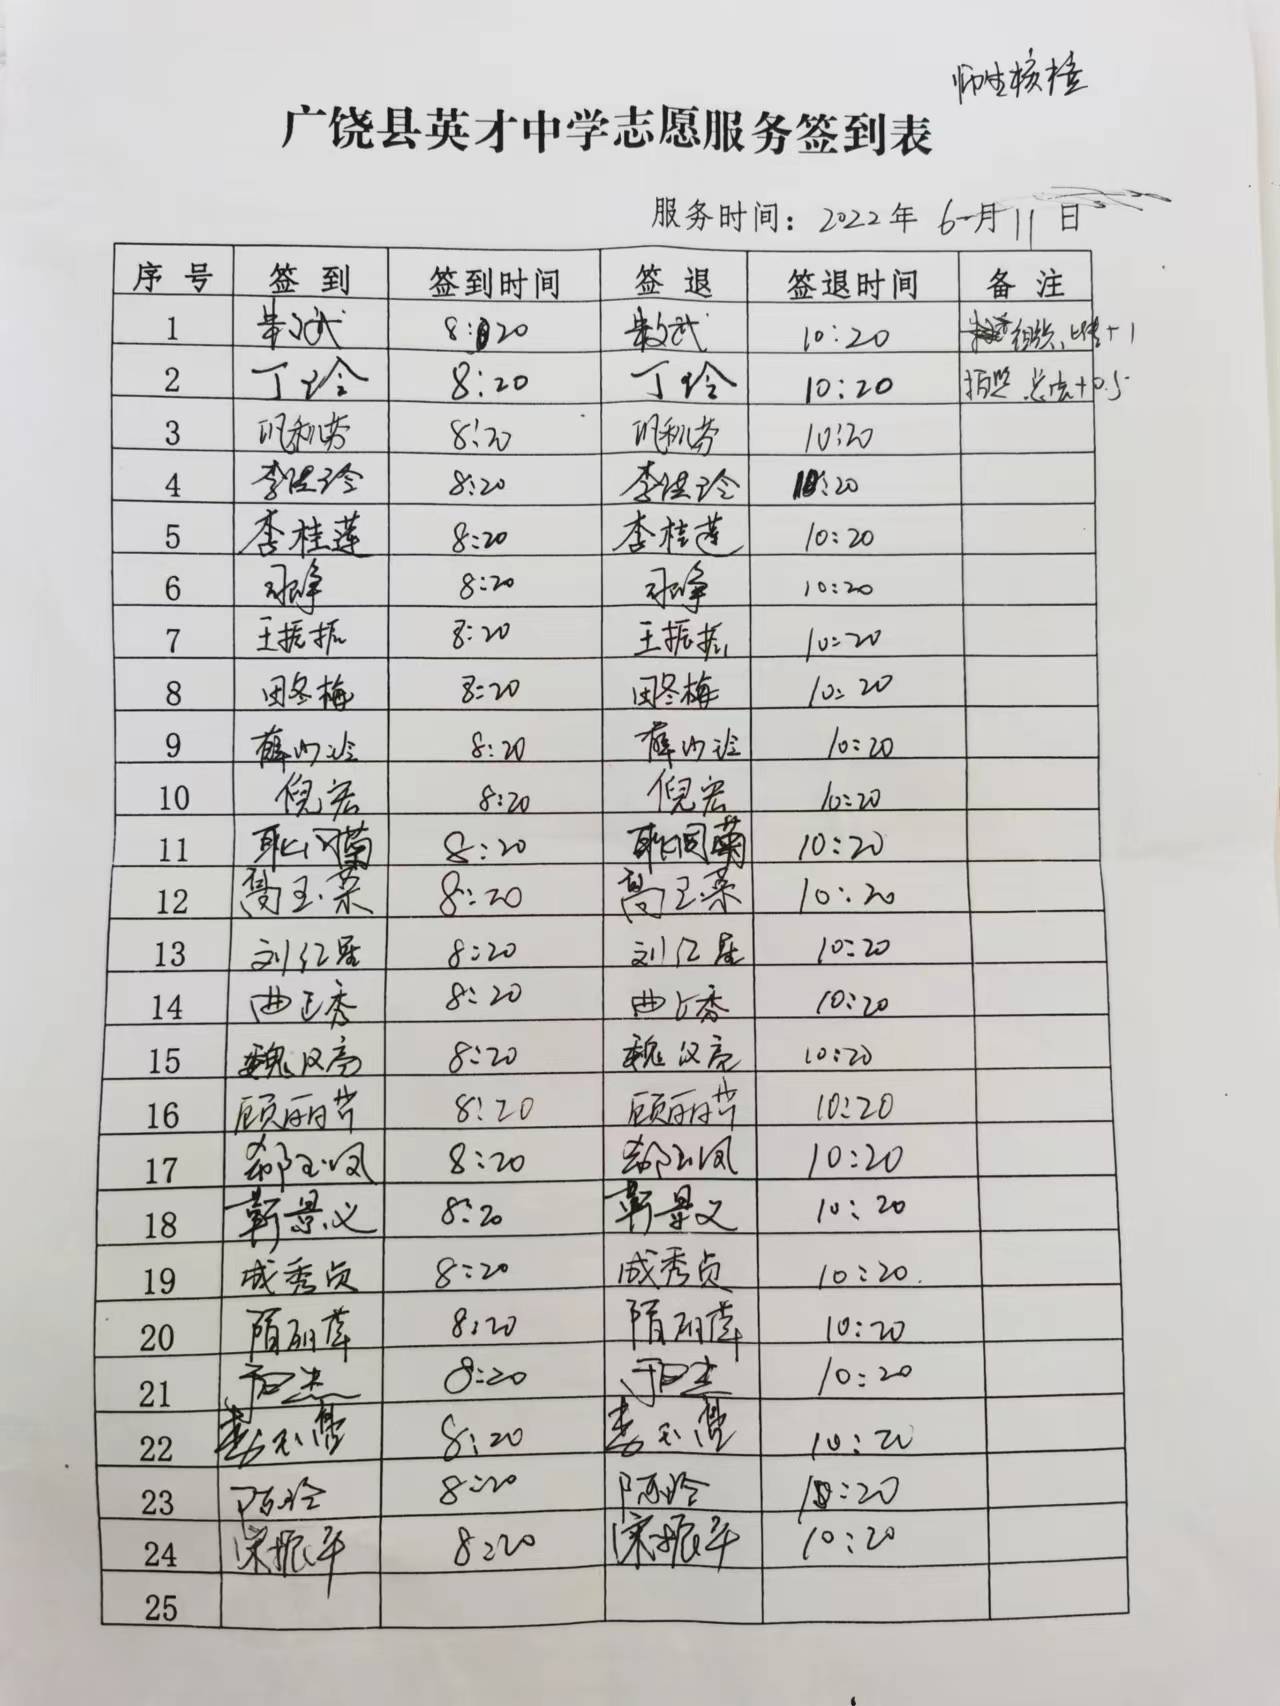 师生核检
广饶县英才中学志愿服务签到表
服务时间：2022年 6月 11日
序号 签到 签到时间 签退 签退时间 备注
1 8:20 10:20 组织, +1
2 丁玲 8:20 丁玲 10:20 拍照 总结+0.5
3 8:20 10:20
4 李洪玲 8:20 李洪玲 10:20
5 李桂莲 8:20 李桂莲 10:20
6 8:20 10:20
7 王振振 8:20 王振振 10:20
8 田冬梅 8:20 田冬梅 10:20
9 8:20 10:20
10 倪宏 8:20 倪宏 10:20
11 耿同菊 8:20 耿同菊 10:20
12 8:20 10:20
13 刘红星 8:20 刘红星 10:20
14 曲正秀 8:20 曲正秀 10:20
15 魏汉亮 8:20 魏汉亮 10:20
16 顾丽芹 8:20 顾丽芹 10:20
17 郗玉凤 8:20 郗玉凤 10:20
18 靳景义 8:20 靳景义 10:20
19 成秀贞 8:20 成秀贞 10:20
20 隋丽萍 8:20 隋丽萍 10:20
21 8:20 10:20
22 8:20 10:20
23 8:20 10:20
24 宋振华 8:20 宋振华 10:20
25